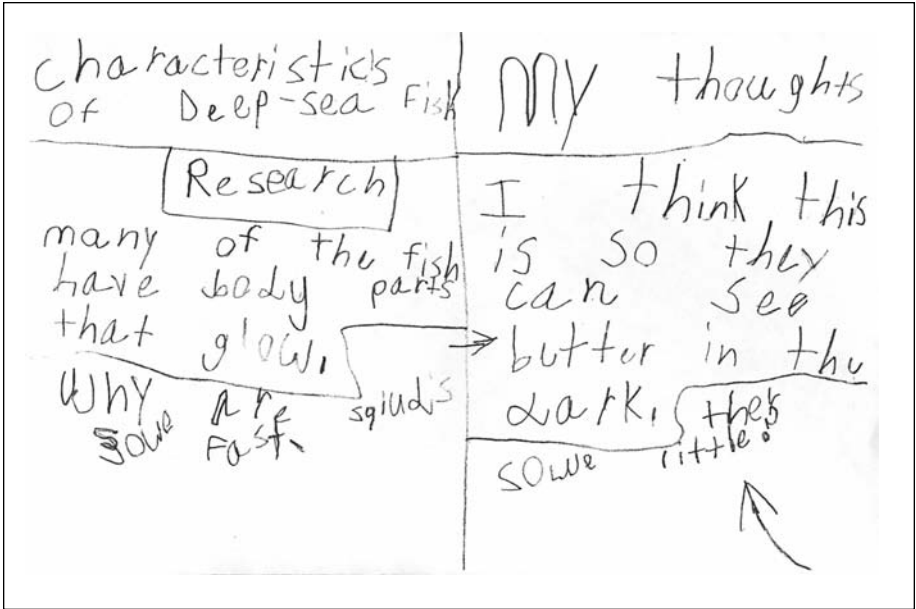 Characteristics
Of Deep-sea Fish
Research
many of the fish
have body parts
that glow.
Why are sqiuds
sowe Fast.
My thoughts
I think this
is so they
can see
butter in the
dark.
sowe
little!